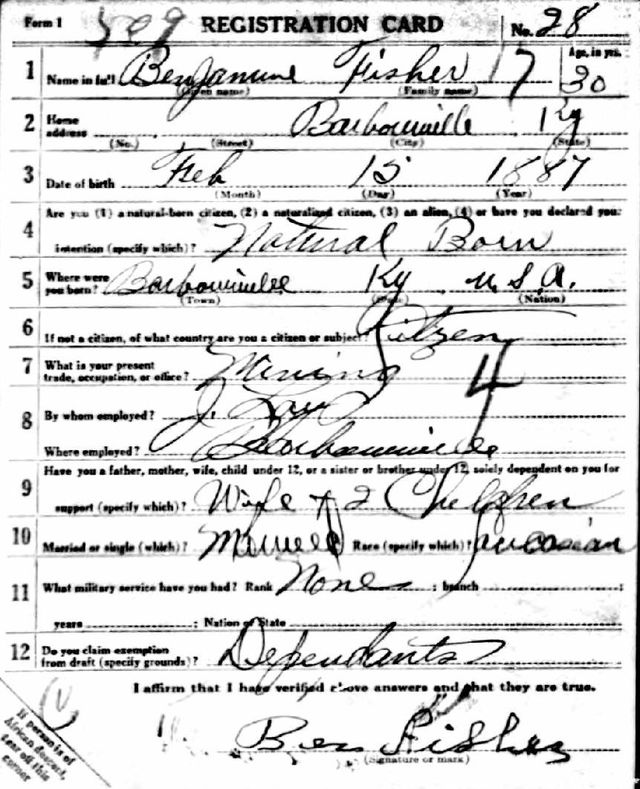 Form 1 509 REGISTRATION CARD No. 28
1 Name in full Benjamine Fisher 17 Age, in yrs. 30
(Given name) (Family name)
2 Home address Barbourville Ky
(No.) (Street) (City) (State)
3 Date of birth Feb 15 1887
(Month) (Day) (Year)
4 Are you (1) a natural-born citizen, (2) a naturalized citizen, (3) an alien, (4) or have you declared your
intention (specify which)? Natural Born
5 Where were you born? Barbourville Ky U.S.A.
(Town) (State) (Nation)
6 If not a citizen, of what country are you a citizen or subject? Citzen
7 What is your present trade, occupation, or office? Mining 4
8 By whom employed? J.
Where employed? Barbourville
9 Have you a father, mother, wife, child under 12, or a sister or brother under 12, solely dependent on you for
support (specify which)? Wife + 2 Children
10 Married or single (which)? Married Race (specify which)? Caucasian
11 What military service have you had? Rank None ; branch ;
years ; Nation or State
12 Do you claim exemption from draft (specify grounds)? Dependants
I affirm that I have verified above answers and that they are true.
Ben Fisher
(Signature or mark)
If person is of
African descent,
tear off this
corner